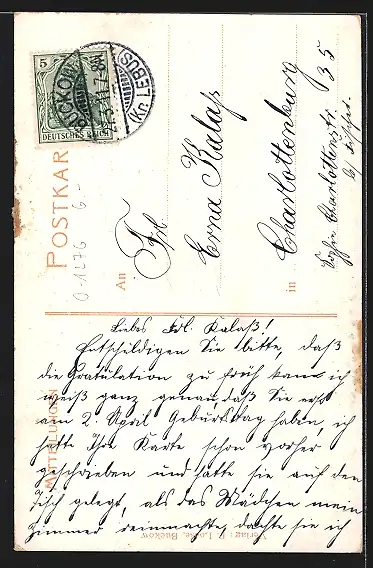 5
DEUTSCHES REICH
BUCKOW
(Kr. LEBUS)
POSTKAR
0-1276 6.-
An Frl.
Erna Kalaß
in Charlottenburg
Charlottenstr. 35
MITTEILUNGEN
Liebs Frl. Kalaß!
Entschuldigen Sie bitte, daß
die Gratulation zu früh kam ich
weiß ganz genau, daß Sie erst
am 2. April Geburtstag haben, ich
hatte Ihre Karte schon vorher
geschrieben und hatte sie auf den
Tisch gelegt, als das Mädchen mein
Zimmer reinmachte, dachte sie ich
Verlag: Buckow